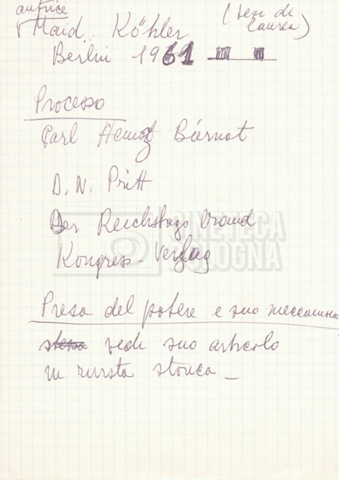 autrice (tesi di
Maid. Köhler laurea)
Berlin 1961
Processo
Carl Biernat
D. N. Pritt
Der Reichstags Brand
Kongress-Verlag
CINETECA
BOLOGNA
Presa del potere e suo meccanismo
vedi suo articolo
in rivista storica _